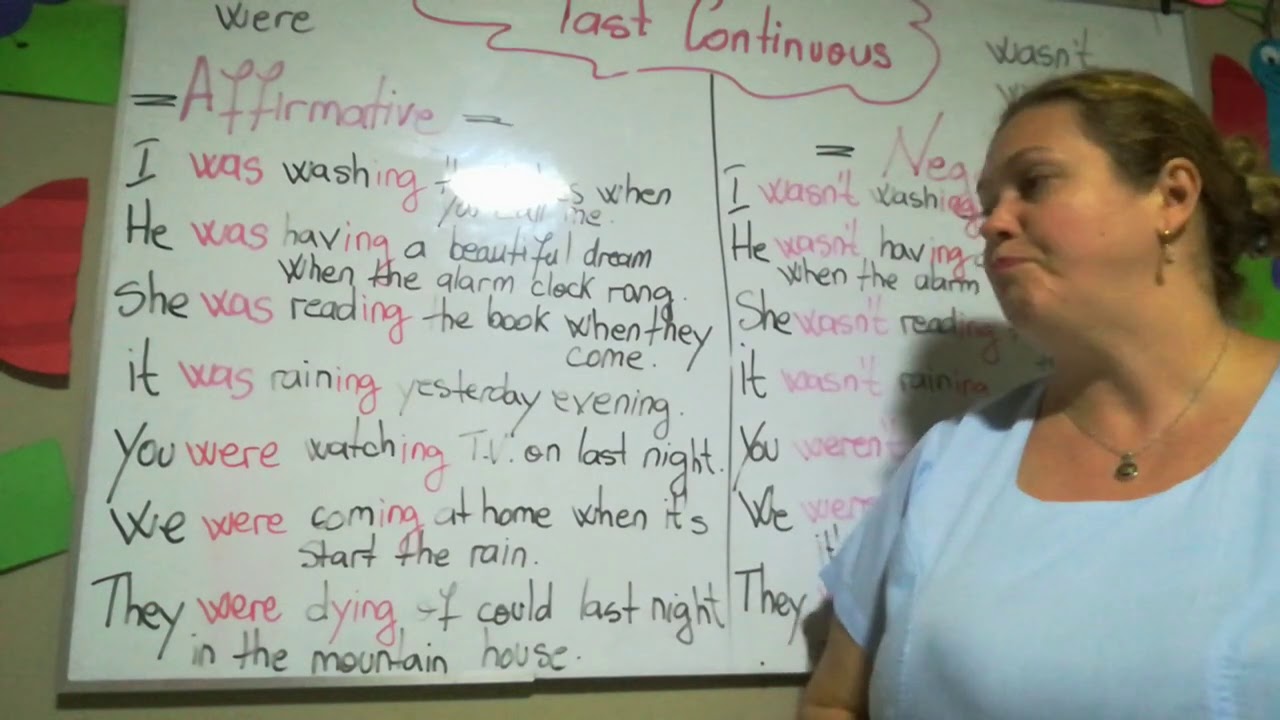 were
Past Continuous
wasn't
= Affirmative =
I was washing when
you call me.
He was having a beautiful dream
when the alarm clock rang.
She was reading the book when they
come.
it was raining yesterday evening.
You were watching T.V. on last night.
We were coming at home when it's
start the rain.
They were dying of could last night
in the mountain house.
=
I wasn't washing
He wasn't having
when the alarm
She wasn't reading
it wasn't raining
You weren't
We
They